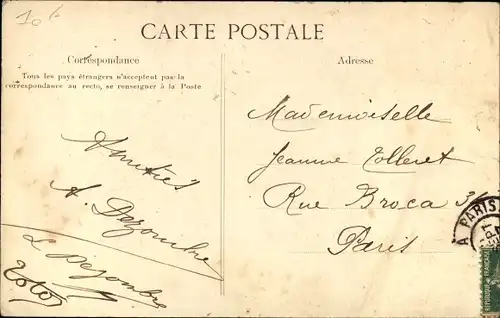 CARTE POSTALE
Correspondance
Tous les pays étrangers n'acceptent pas la
correspondance au recto, se renseigner à la Poste
Amitiés
A. Dezombre
L Dezombre
Toto
Adresse
Mademoiselle
Jeanne Tolleret
Rue Broca 31
Paris
A PARIS